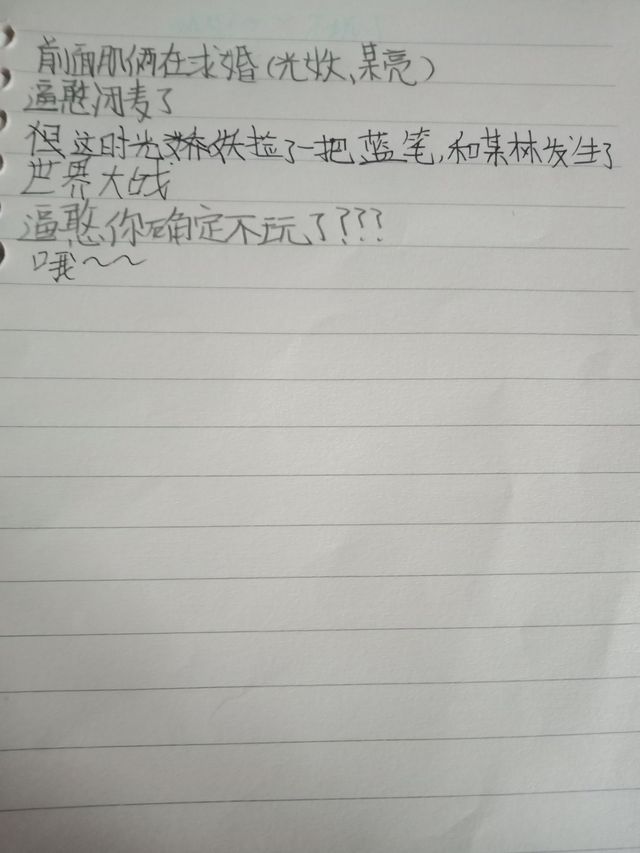 前面那俩在求婚(光妖、某亮)
逼憨闭麦了
但这时光妖拉了一把蓝笔,和某林发生了
世界大战
逼憨你确定不玩了???
哦~~